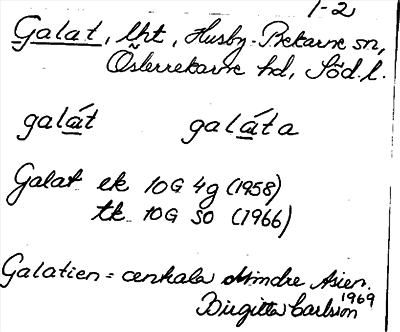 1-2
Galat, lht, Husby-Rekarne sn,
Österrekarne hd, Söd. l.
galát galáta
Galat ek 10G 4g (1958)
tk 10G SO (1966)
Galatien = centrala Mindre Asien.
1969
Birgitta Carlsson